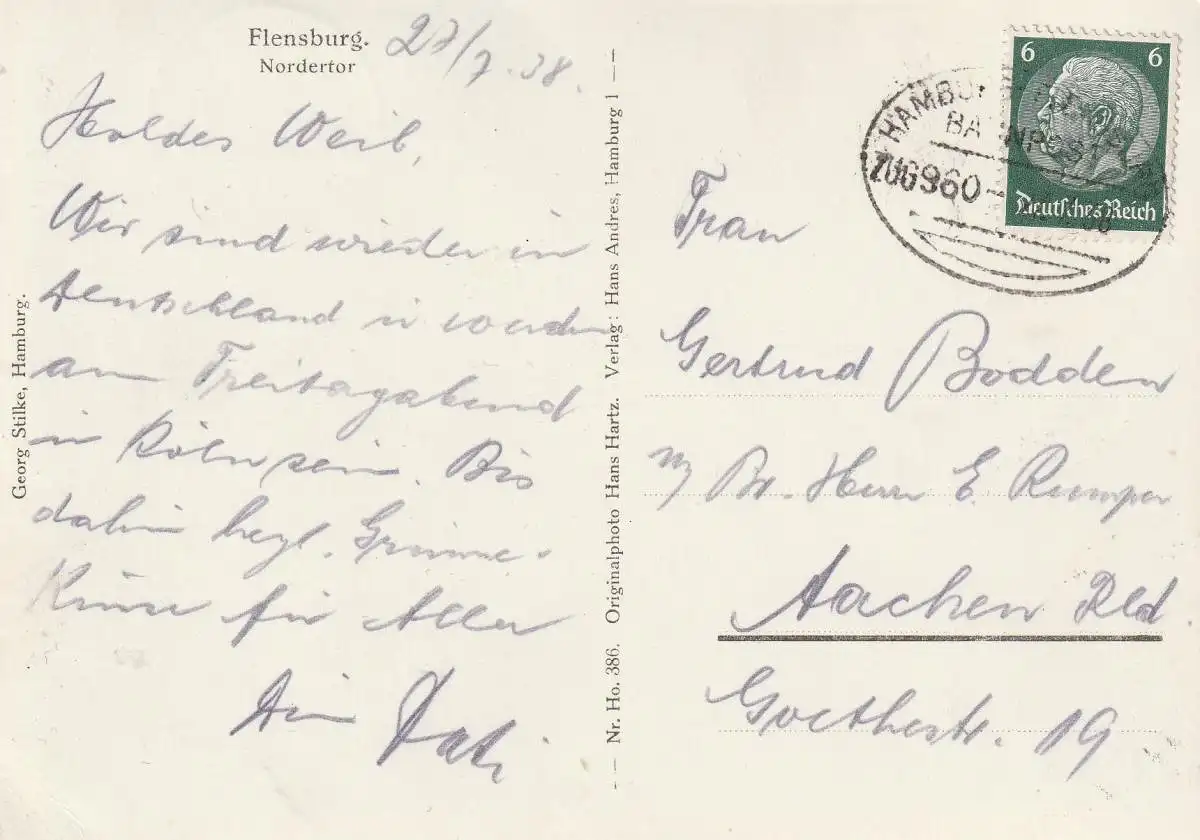 Flensburg.
Nordertor
27/7.38.
Holdes Weib,
Wir sind wieder in
Deutschland u werden
am Freitagabend
in Köln sein. Bis
dahin herzl. Grüsse
Küsse für Alle
Dein
Georg Stilke, Hamburg.
Nr. Ho. 386. Originalphoto Hans Hartz. Verlag: Hans Andres, Hamburg 1
6 6
Deutsches Reich
HAMBU
BAHNPOST
ZUG960
Frau
Gertrud Bodden
Br. Herrn E. Rumpen
Aachen Rld
Goethestr. 19